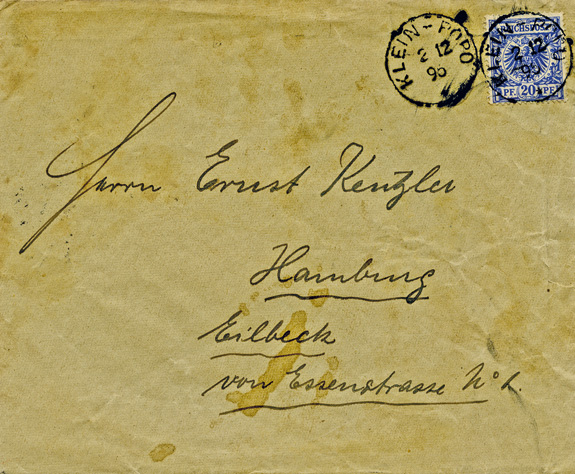 KLEIN-POPO
2 12
95
REICHSPOST
KLEIN-POPO
2 12
PF. 20 PF.
Herrn Ernst Kentzler
Hamburg
Eilbeck
von Essenstrasse No